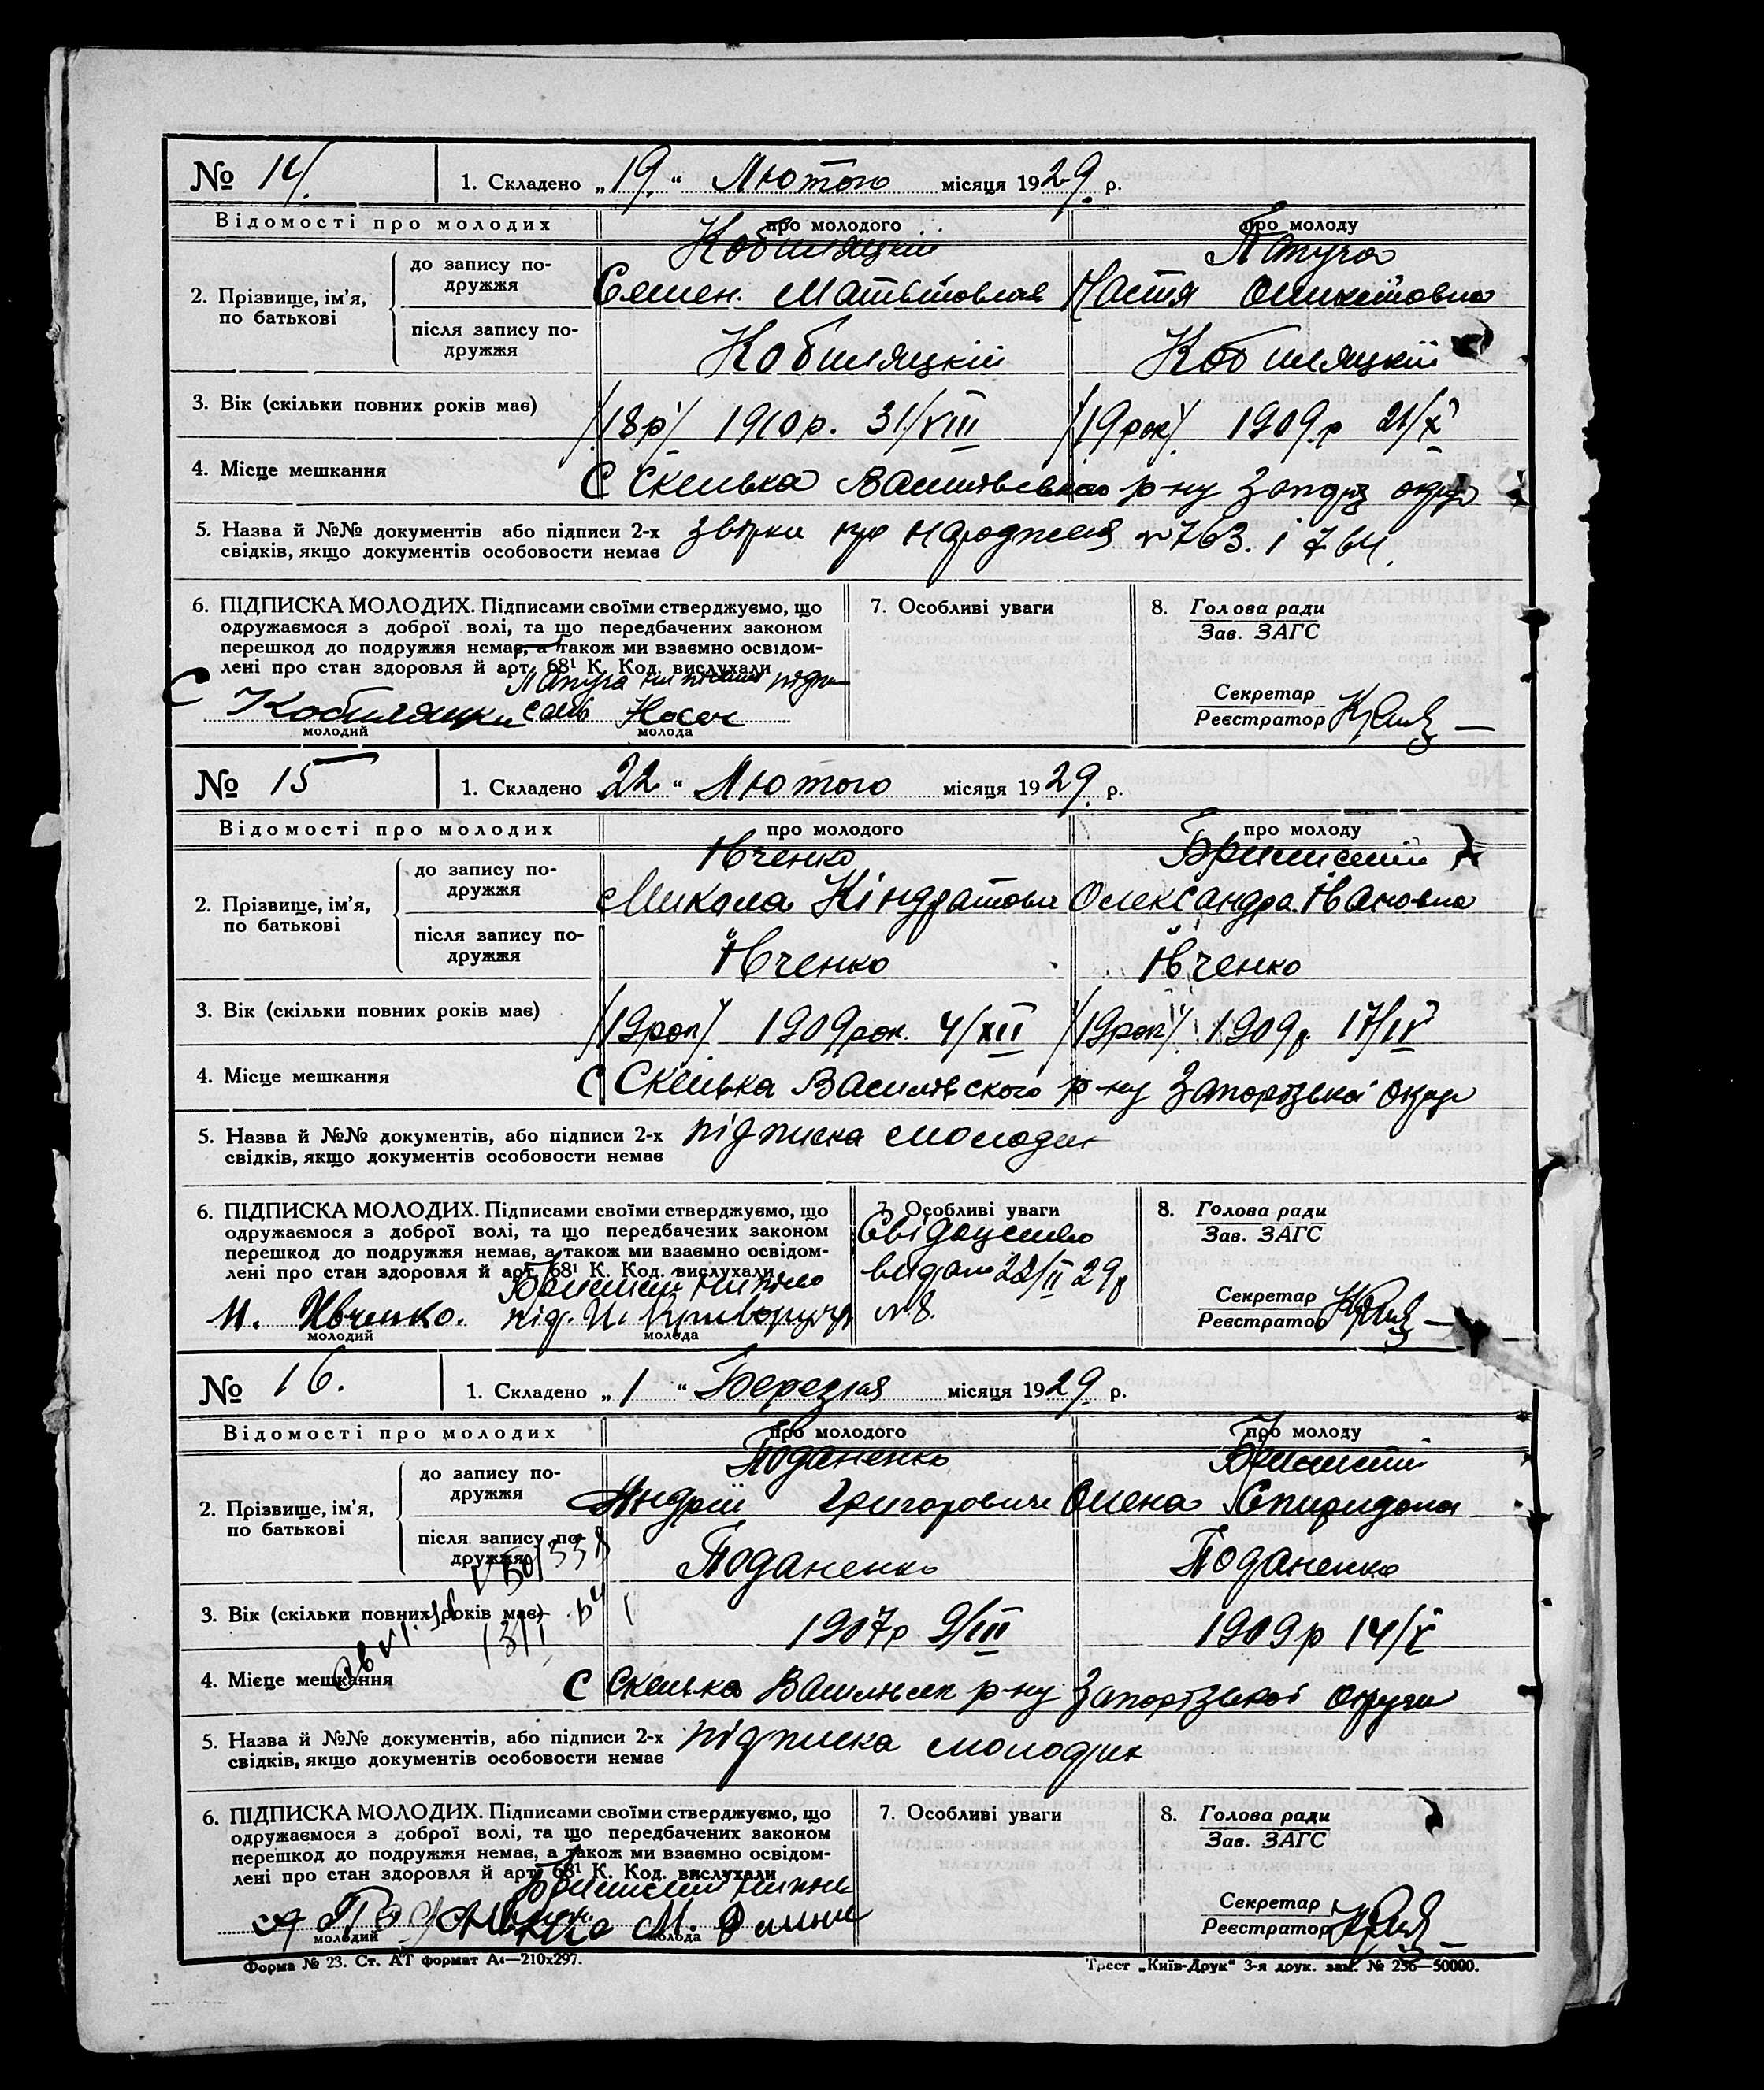 № 14. 1. Складено „19." Лютого місяця 1929. р.
Відомості про молодих про молодого про молоду
Кобиляцкій
2. Прізвище, ім'я, по батькові
до запису подружжя
Семен. Настя
після запису подружжя
Кобиляцкій Кобиляцкій
3. Вік (скільки повних років має)
/18р/ 1910р. 31/VIII /19рок/ 1909р 21/X
4. Місце мешкання
С Скелька р-ну
5. Назва й №№ документів або підписи 2-х
свідків, якщо документів особовости немає
про народження №763. і 764.
6. ПІДПИСКА МОЛОДИХ. Підписами своїми стверджуємо, що
одружаємося з доброї волі, та що передбачених законом
перешкод до подружжя немає, а також ми взаємно освідом-
лені про стан здоровля й арт. 68¹ К. Код. вислухали
молодий молода
7. Особливі уваги
8. Голова ради
Зав. ЗАГС
Секретар
Реєстратор
№ 15 1. Складено 22 " Лютого місяця 1929. р.
Відомості про молодих про молодого про молоду
Ївченко
2. Прізвище, ім'я, по батькові
до запису подружжя
Микола Кіндратович Олександра Івановна
після запису подружжя
Ївченко Ївченко
3. Вік (скільки повних років має)
/19рок/ 1909рок. 4/XII /19рок/ 1909р. 17/IV
4. Місце мешкання
С Скелька Василівского р-ну Запорізької округ
5. Назва й №№ документів, або підписи 2-х
свідків, якщо документів особовости немає
підписка молодих
6. ПІДПИСКА МОЛОДИХ. Підписами своїми стверджуємо, що
одружаємося з доброї волі, та що передбачених законом
перешкод до подружжя немає, а також ми взаємно освідом-
лені про стан здоровля й арт. 68¹ К. Код. вислухали
М. Ивченко.
молодий молода
7. Особливі уваги
Свідоцтво
видано 22/II 29р
№8.
8. Голова ради
Зав. ЗАГС
Секретар
Реєстратор
№ 16. 1. Складено „1" Березня місяця 1929. р.
Відомості про молодих про молодого про молоду
Поданенко
2. Прізвище, ім'я, по батькові
до запису подружжя
Андрій Григорович Олена
після запису подружжя
Поданенко Поданенко
3. Вік (скільки повних років має)
1907р 9/III 1909р 14/V
4. Місце мешкання
С Скелька р-ну Запорізької округи
5. Назва й №№ документів, або підписи 2-х
свідків, якщо документів особовости немає
підписка молодих
6. ПІДПИСКА МОЛОДИХ. Підписами своїми стверджуємо, що
одружаємося з доброї волі, та що передбачених законом
перешкод до подружжя немає, а також ми взаємно освідом-
лені про стан здоровля й арт. 68¹ К. Код. вислухали
молодий молода
7. Особливі уваги
8. Голова ради
Зав. ЗАГС
Секретар
Реєстратор
Форма № 23. Ст. АТ формат А4—210x297. Трест „Київ-Друк" 3-я друк. зам. № 256—50000.